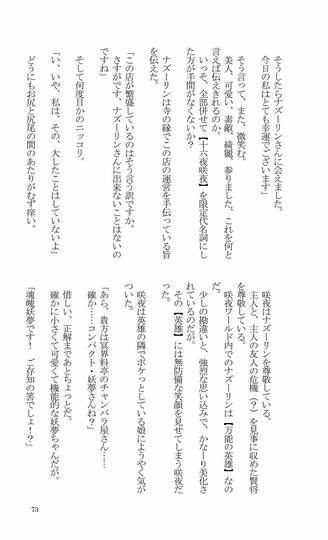 そうしたらナズーリンさんに会えました。
今日の私はとても幸運でございます」
そう言って、また、微笑む。
美人、可愛い、素敵、綺麗、参りました、これを何と
言えば伝えきれるのか。
いっそ、全部併せて【十六夜咲夜】を限定代名詞にし
た方が手間がなくないか？
ナズーリンは寺の縁でこの店の運営を手伝っている旨
を伝えた。
「この店が繁盛しているのはそう言う訳ですか。
さすがです、ナズーリンさんに出来ないことはないの
ですね」
そして何度目かのニッコリ。
「い、いや、私は、その、大したことはしていないよ」
どうにもお尻と尻尾の間のあたりがむず痒い。
咲夜はナズーリンを尊敬している。
主人と、主人の友人の危機（？）を見事に収めた賢将
を尊敬している。
咲夜ワールド内でのナズーリンは【万能の英雄】なの
だ。
少しの勘違いと、強烈な思い込みで、かなーり美化さ
れているのだが。
その【英雄】には無防備な笑顔を見せてしまう咲夜だ
った。
咲夜は英雄の隣でポケっとしている娘にようやく気が
ついた。
「あら、貴方は冥界料亭のチャンバラ屋さん……
確か……コンパクト・妖夢さんね？」
惜しい、正解まであとちょっとだ。
確かに小さくて可愛くて機能的な妖夢ちゃんだが。
「魂魄妖夢です！　ご存知の筈でしょ！？」
73